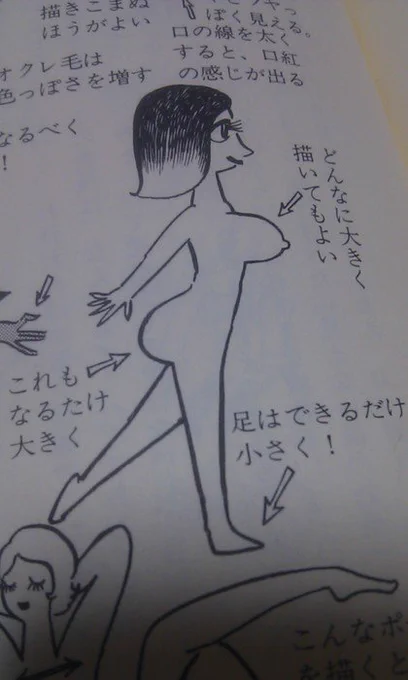 描きこまぬ
ほうがよい
ぽく見える。
口の線を太く
すると、口紅
の感じが出る
オクレ毛は
色っぽさを増す
なるべく
!
どんなに大きく
描いてもよい
これも
なるたけ
大きく
足はできるだけ
小さく!
こんなポ
を描くと